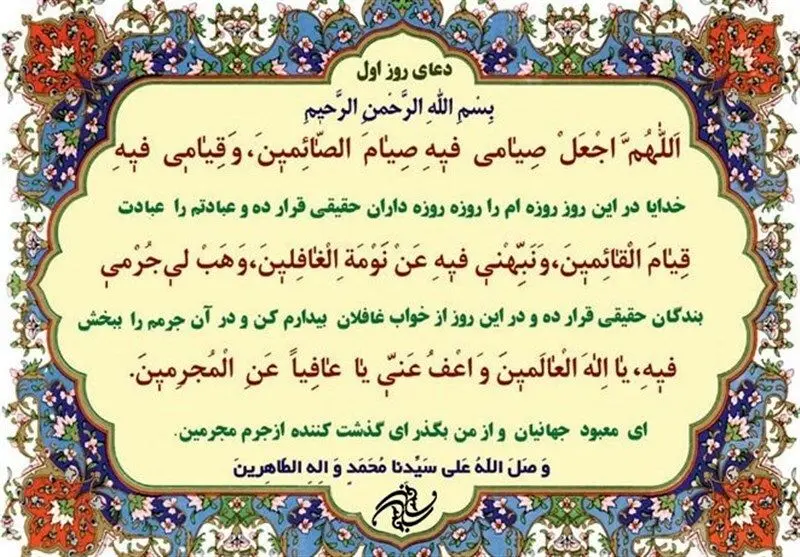 دعای روز اول
بِسْمِ اللهِ الرَّحْمنِ الرَّحیمِ
اَللّهُمَّ اجْعَلْ صِیامی فیهِ صِیامَ الصّائِمینَ، وَ قِیامی فیهِ
خدایا در این روز روزه ام را روزه روزه داران حقیقی قرار ده و عبادتم را عبادت
قِیامَ الْقائِمینَ، وَ نَبِّهْنی فیهِ عَنْ نَوْمَةِ الْغافِلینَ، وَ هَبْ لی جُرْمی
بندگان حقیقی قرار ده و در این روز از خواب غافلان بیدارم کن و در آن جرمم را ببخش
فیهِ، یا اِلهَ الْعالَمینَ وَ اعْفُ عَنّی یا عافِیاً عَنِ الْمُجرِمینَ.
ای معبود جهانیان و از من بگذر ای گذشت کننده ازجرم مجرمین.
وَ صَلَ اللهُ عَلی سَیِّدنا مُحَمَدٍ وَ الِهِ الطّاهِرینَ